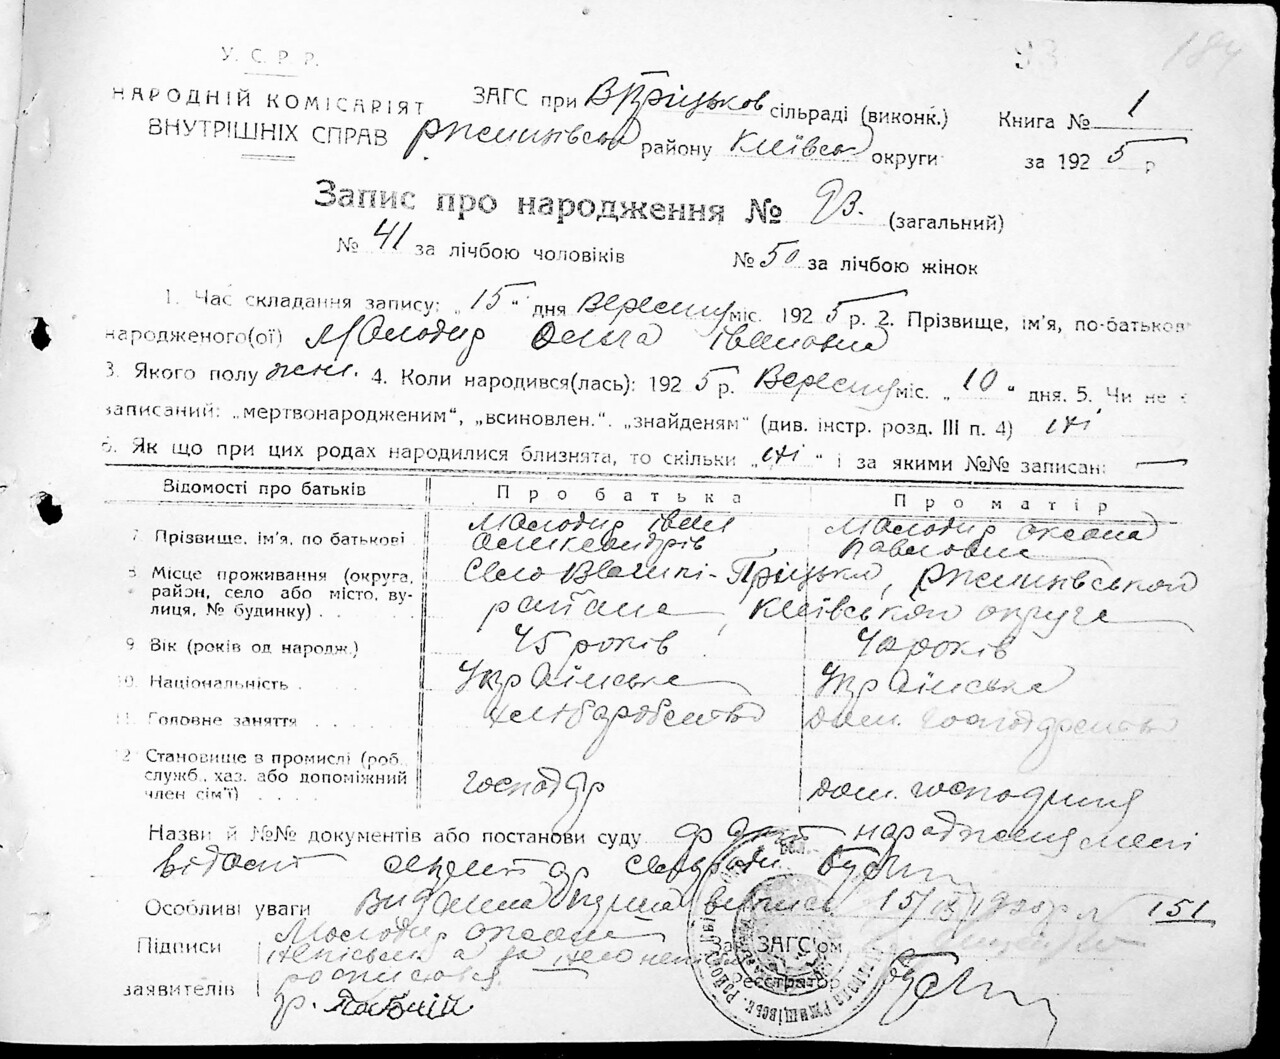 93 184
У. С. Р. Р.
НАРОДНІЙ КОМІСАРІЯТ ЗАГС при В Гріцьков сільраді (виконк.) Книга № 1
ВНУТРІШНІХ СПРАВ Ржищівськ району Київськ округи за 1925 р
Запис про народження № 93. (загальний)
№ 41 за лічбою чоловіків № 50 за лічбою жінок
1. Час складання запису: „15“ дня Вересня міс. 1925 р. 2. Прізвище, ім'я, по-батькові
народженого(ої) Молодид Ольга Івановна
3. Якого полу жін. 4. Коли народився(лась): 1925 р. Вересня міс. „10“ дня. 5. Чи не є
записаний: „мертвонародженим“, „всиновлен.“. „знайденям“ (див. інстр. розд. III п. 4) ні
6. Як що при цих родах народилися близнята, то скільки „ні“ і за якими №№ записан: —
Відомості про батьків Про батька Про матір
7 Прізвище, ім'я, по батькові Молодид Іван Олександрів Молодид Оксана Павловна
8 Місце проживання (округа, район, село або місто, вулиця, № будинку) . Село Великі-Пріцьки, Ржищівської района, Київської округи
9 Вік (років од народж.) 45 років 40 років
10. Національність . Українська Українська
11. Головне заняття . . . . . хліборобство дом. господарство
12 Становище в промислі (роб., служб., хаз. або допоміжний член сім'ї) . . . . господар дом. господиня
Назви й №№ документів або постанови суду народження
Особливі уваги Видана виписка 15/IX 1925 р № 151
Підписи Молодид Оксана
заявителів неписьмена а за неї росписався
гр.
Зав. ЗАГС'ом
Реєстратор